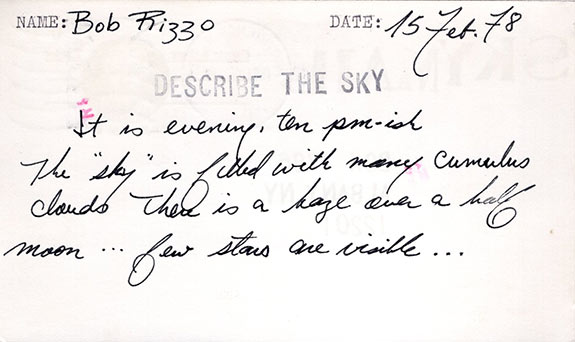 NAME: Bob Rizzo DATE: 15 Feb. 78
DESCRIBE THE SKY
It is evening, ten pm-ish
The "sky" is filled with many cumulus
clouds There is a haze over a half
moon ... few stars are visible ...